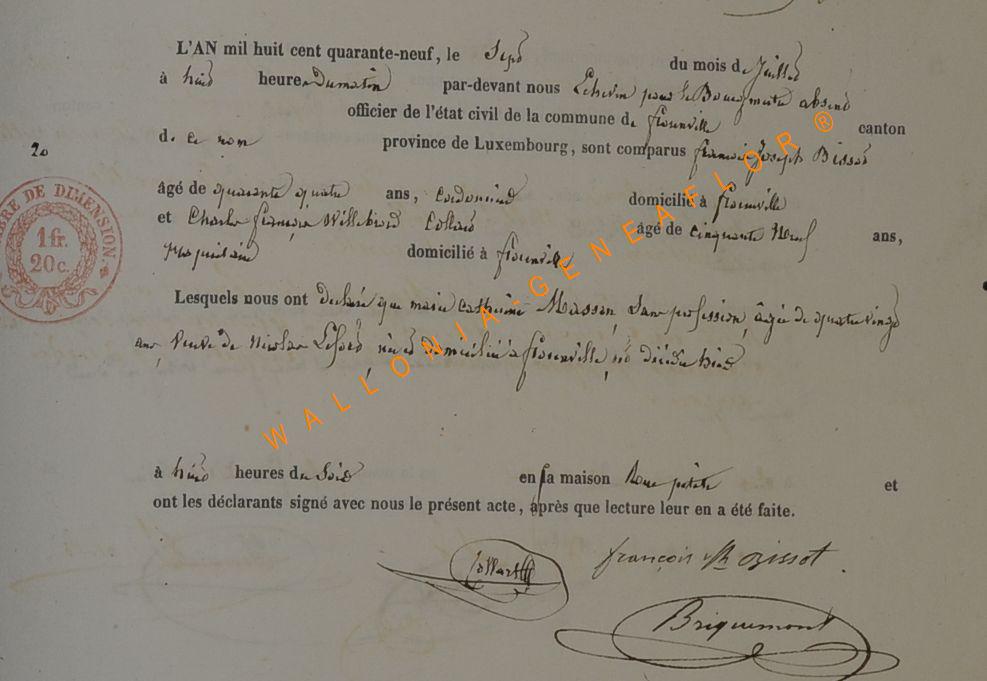 L'AN mil huit cent quarante-neuf, le Sept du mois de Juillet
à huit heures Dumatin par-devant nous Echevin pour le Bourgmestre absent
officier de l'état civil de la commune de florenville canton
de ce nom province de Luxembourg, sont comparus françois Joseph Bissot
20
âgé de quarante quatre ans, Cordonnier domicilié à florenville
et Charles françois Willebrord Collard âgé de cinquante Neuf ans,
propriétaire domicilié à florenville
Lesquels nous ont déclaré que marie Catherine Masson, Sans profession, âgée de quatre vingt
ans, Veuve de Nicolas née et Domiciliée à florenville, est décédée hier
à huit heures du Soir en sa maison Rue petite et
ont les déclarants signé avec nous le présent acte, après que lecture leur en a été faite.
Collard françois Bissot
Briquemont
TIMBRE DE DIMENSION
1 fr.
20 c.
WALLONIA-GENEAFLOR ®